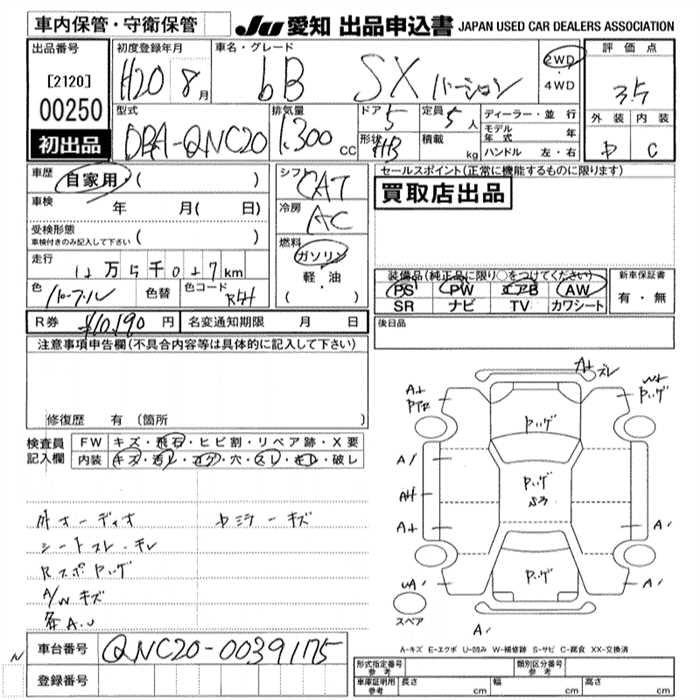 車内保管・守衛保管
JU 愛知 出品申込書 JAPAN USED CAR DEALERS ASSOCIATION
出品番号 初度登録年月 車名・グレード 評価点
[2120] H20 8月 bB SX バージョン 2WD・4WD 3.5
00250
初出品
型式 排気量 ドア 定員 ディーラー・並行 外装 内装
DBA-QNC20 1,300 cc 5 5人 モデル年式 年 D C
形状 HB 積載 kg ハンドル 左・右
車歴 自家用 ( ) シフト CAT セールスポイント(正常に機能するものに限ります)
車検 年 月( 日) 冷房 AC 買取店出品
受検形態 ( )
車検付きのみ記入して下さい
燃料 ガソリン 軽・油 ( )
走行 12万5千017km 装備品(純正品に限り○をつけてください) 新車保証書
色 パープル 色替 色コード R41 PS PW エアB AW 有・無
SR ナビ TV カワシート
R券 ¥10,190円 名変通知期限 月 日 後日品
注意事項申告欄(不具合内容等は具体的に記入して下さい)
修復歴 有 (箇所 )
検査員記入欄 FW キズ・飛石・ヒビ割・リペア跡・X要
内装 キズ・汚レ・コゲ・穴・スレ・キレ・破レ
外オーディオ カミナーキズ
シートスレ・キレ
Rスポハゲ
A/Wキズ
各A.U
A+
A1
AH
A+
A1
A1
A1
スペア
A-キズ E-エクボ U-凹み W-補修跡 S-サビ C-腐食 XX-交換済
車台番号 QNC20-0039175
登録番号
形式指定番号 参考 類別区分番号 参考
車庫証明用 参考 長さ cm 幅 cm 高さ cm